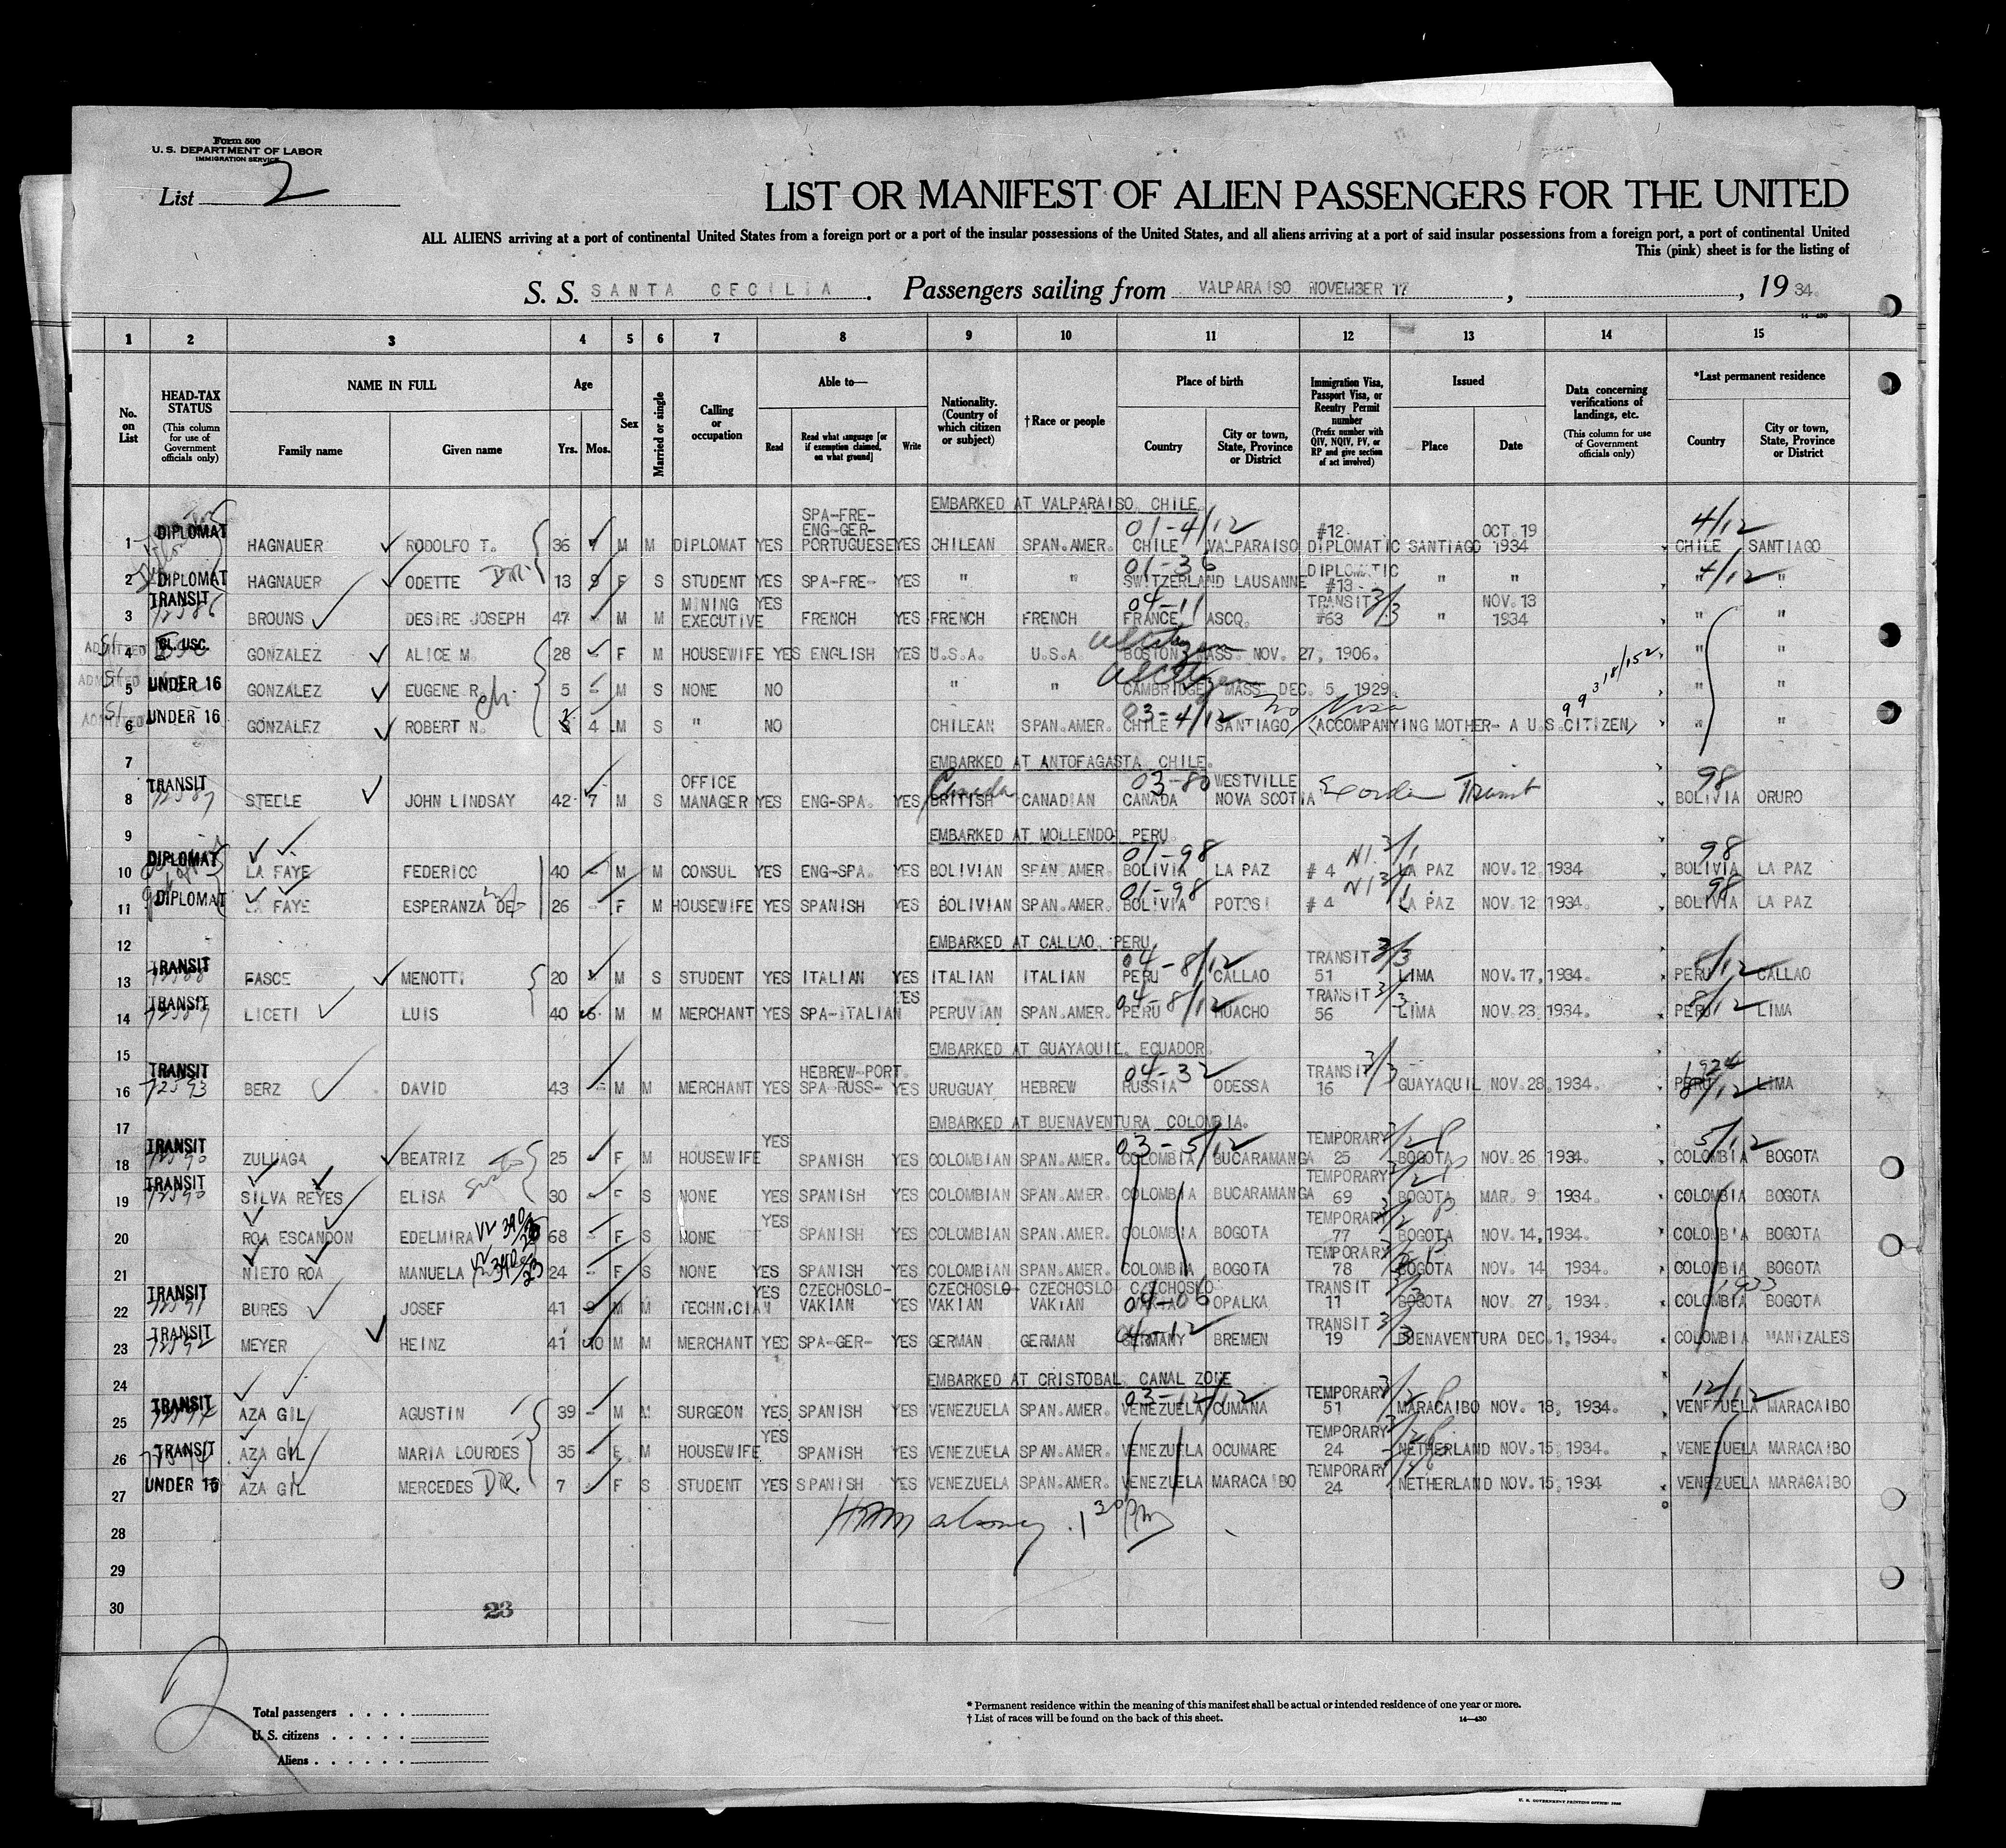 Form 500
U. S. DEPARTMENT OF LABOR
IMMIGRATION SERVICE
List 2
LIST OR MANIFEST OF ALIEN PASSENGERS FOR THE UNITED
ALL ALIENS arriving at a port of continental United States from a foreign port or a port of the insular possessions of the United States, and all aliens arriving at a port of said insular possessions from a foreign port, a port of continental United
This (pink) sheet is for the listing of
S. S. SANTA CECILIA. Passengers sailing from VALPARAISO NOVEMBER 17, , 1934.
14-430
1 2 3 4 5 6 7 8 9 10 11 12 13 14 15
No. on List
HEAD-TAX STATUS
(This column for use of Government officials only)
NAME IN FULL
Family name Given name
Age
Yrs. Mos.
Sex
Married or single
Calling or occupation
Able to—
Read Read what language [or if exemption claimed, on what ground] Write
Nationality. (Country of which citizen or subject)
†Race or people
Place of birth
Country City or town, State, Province or District
Immigration Visa, Passport Visa, or Reentry Permit number
(Prefix number with QIV, NQIV, PV, or RP and give section of act involved)
Issued
Place Date
Data concerning verifications of landings, etc.
(This column for use of Government officials only)
*Last permanent residence
Country City or town, State, Province or District
EMBARKED AT VALPARAISO, CHILE
1 DIPLOMAT HAGNAUER RODOLFO T. 36 M M DIPLOMAT YES SPA-FRE-ENG-GER-PORTUGUESE YES CHILEAN SPAN.AMER. 01-4/12 CHILE VALPARAISO #12. DIPLOMATIC SANTIAGO OCT.19 1934 4/12 CHILE SANTIAGO
2 DIPLOMAT HAGNAUER ODETTE DR. 13 9 F S STUDENT YES SPA-FRE- YES " " 01-36 SWITZERLAND LAUSANNE DIPLOMATIC #13- " " 4/12 " "
3 TRANSIT 72586 BROUNS DESIRE JOSEPH 47 - M M MINING EXECUTIVE YES FRENCH YES FRENCH FRENCH 04-11 FRANCE ASCQ. TRANSIT 3/3 #63 " NOV.13 1934 " "
4 ADMITTED USC. GONZALEZ ALICE M. 28 - F M HOUSEWIFE YES ENGLISH YES U.S.A. U.S.A. BOSTON MASS. NOV. 27, 1906. " "
5 ADMITTED UNDER 16 GONZALEZ EUGENE R. ch. 5 - M S NONE NO " " CAMBRIDGE MASS DEC. 5 1929. " "
6 ADMITTED UNDER 16 GONZALEZ ROBERT N. 3 4 M S " NO CHILEAN SPAN.AMER. 03-4/12 CHILE SANTIAGO No Visa (ACCOMPANYING MOTHER- A U.S.CITIZEN) " "
99318/152
7 EMBARKED AT ANTOFAGASTA, CHILE.
8 TRANSIT 72587 STEELE JOHN LINDSAY 42 7 M S OFFICE MANAGER YES ENG-SPA. YES Canada BRITISH CANADIAN 03-80 CANADA WESTVILLE NOVA SCOTIA Transit 98 BOLIVIA ORURO
9 EMBARKED AT MOLLENDO, PERU.
10 DIPLOMAT LA FAYE FEDERICO 40 - M M CONSUL YES ENG-SPA. YES BOLIVIAN SPAN.AMER. 01-98 BOLIVIA LA PAZ # 4 N1. 3/1 LA PAZ NOV.12,1934 98 BOLIVIA LA PAZ
11 DIPLOMAT LA FAYE ESPERANZA DE- 26 - F M HOUSEWIFE YES SPANISH YES BOLIVIAN SPAN.AMER. 01-98 BOLIVIA POTOSI # 4 N1 3/1 LA PAZ NOV.12 1934. 98 BOLIVIA LA PAZ
12 EMBARKED AT CALLAO, PERU
13 TRANSIT 72588 FASCE MENOTTI 20 - M S STUDENT YES ITALIAN YES ITALIAN ITALIAN 04-8/12 PERU CALLAO TRANSIT 3/3 51 LIMA NOV.17,1934. 8/12 PERU CALLAO
14 TRANSIT 72589 LICETI LUIS 40 6 M M MERCHANT YES SPA-ITALIAN YES PERUVIAN SPAN.AMER. 04-8/12 PERU HUACHO TRANSIT 3/3 56 LIMA NOV.23,1934. 8/12 PERU LIMA
15 EMBARKED AT GUAYAQUIL, ECUADOR.
16 TRANSIT 72593 BERZ DAVID 43 - M M MERCHANT YES HEBREW-PORT. SPA-RUSS- YES URUGUAY HEBREW 04-32 RUSSIA ODESSA TRANSIT 3/3 16 GUAYAQUIL NOV.28,1934. 1924 8/12 PERU LIMA
17 EMBARKED AT BUENAVENTURA, COLOMBIA.
18 TRANSIT 72590 ZULUAGA BEATRIZ 25 - F M HOUSEWIFE YES SPANISH YES COLOMBIAN SPAN.AMER. 03-5/12 COLOMBIA BUCARAMANGA TEMPORARY 3/2 25 BOGOTA NOV.26 1934. 5/12 COLOMBIA BOGOTA
19 TRANSIT 72590 SILVA REYES ELISA sister 30 - F S NONE YES SPANISH YES COLOMBIAN SPAN.AMER. COLOMBIA BUCARAMANGA TEMPORARY 3/2 69 BOGOTA MAR. 9 1934. COLOMBIA BOGOTA
20 ROA ESCANDON EDELMIRA 68 - F S NONE YES SPANISH YES COLOMBIAN SPAN.AMER. COLOMBIA BOGOTA TEMPORARY 3/2 77 BOGOTA NOV.14,1934. COLOMBIA BOGOTA
21 NIETO ROA MANUELA 24 - F S NONE YES SPANISH YES COLOMBIAN SPAN.AMER. COLOMBIA BOGOTA TEMPORARY 78 BOGOTA NOV. 14 1934. COLOMBIA BOGOTA
22 TRANSIT 72591 BURES JOSEF 41 9 M M TECHNICIAN YES CZECHOSLO-VAKIAN YES CZECHOSLO-VAKIAN CZECHOSLO-VAKIAN CZECHOSLO- 04-06 OPALKA TRANSIT 11 BOGOTA NOV. 27, 1934. 1933 COLOMBIA BOGOTA
23 TRANSIT 72592 MEYER HEINZ 41 10 M M MERCHANT YES SPA-GER- YES GERMAN GERMAN 04-12 GERMANY BREMEN TRANSIT 3/3 19 BUENAVENTURA DEC.1,1934. COLOMBIA MANIZALES
24 EMBARKED AT CRISTOBAL, CANAL ZONE
25 TRANSIT 72594 AZA GIL AGUSTIN 39 - M M SURGEON YES SPANISH YES VENEZUELA SPAN.AMER. 03-12/12 VENEZUELA CUMANA TEMPORARY 3/2 51 MARACAIBO NOV. 18, 1934. 12/12 VENEZUELA MARACAIBO
26 TRANSIT 72594 AZA GIL MARIA LOURDES 35 - F M HOUSEWIFE YES SPANISH YES VENEZUELA SPAN.AMER. VENEZUELA OCUMARE TEMPORARY 24 NETHERLAND NOV.15,1934. VENEZUELA MARACAIBO
27 UNDER 16 AZA GIL MERCEDES DR. 7 - F S STUDENT YES SPANISH YES VENEZUELA SPAN.AMER. VENEZUELA MARACAIBO TEMPORARY 24 NETHERLAND NOV.15,1934 VENEZUELA MARACAIBO
28 1 30 Pm
29
30
23
2
Total passengers
U. S. citizens
Aliens
* Permanent residence within the meaning of this manifest shall be actual or intended residence of one year or more.
† List of races will be found on the back of this sheet. 14-430
U. S. GOVERNMENT PRINTING OFFICE: